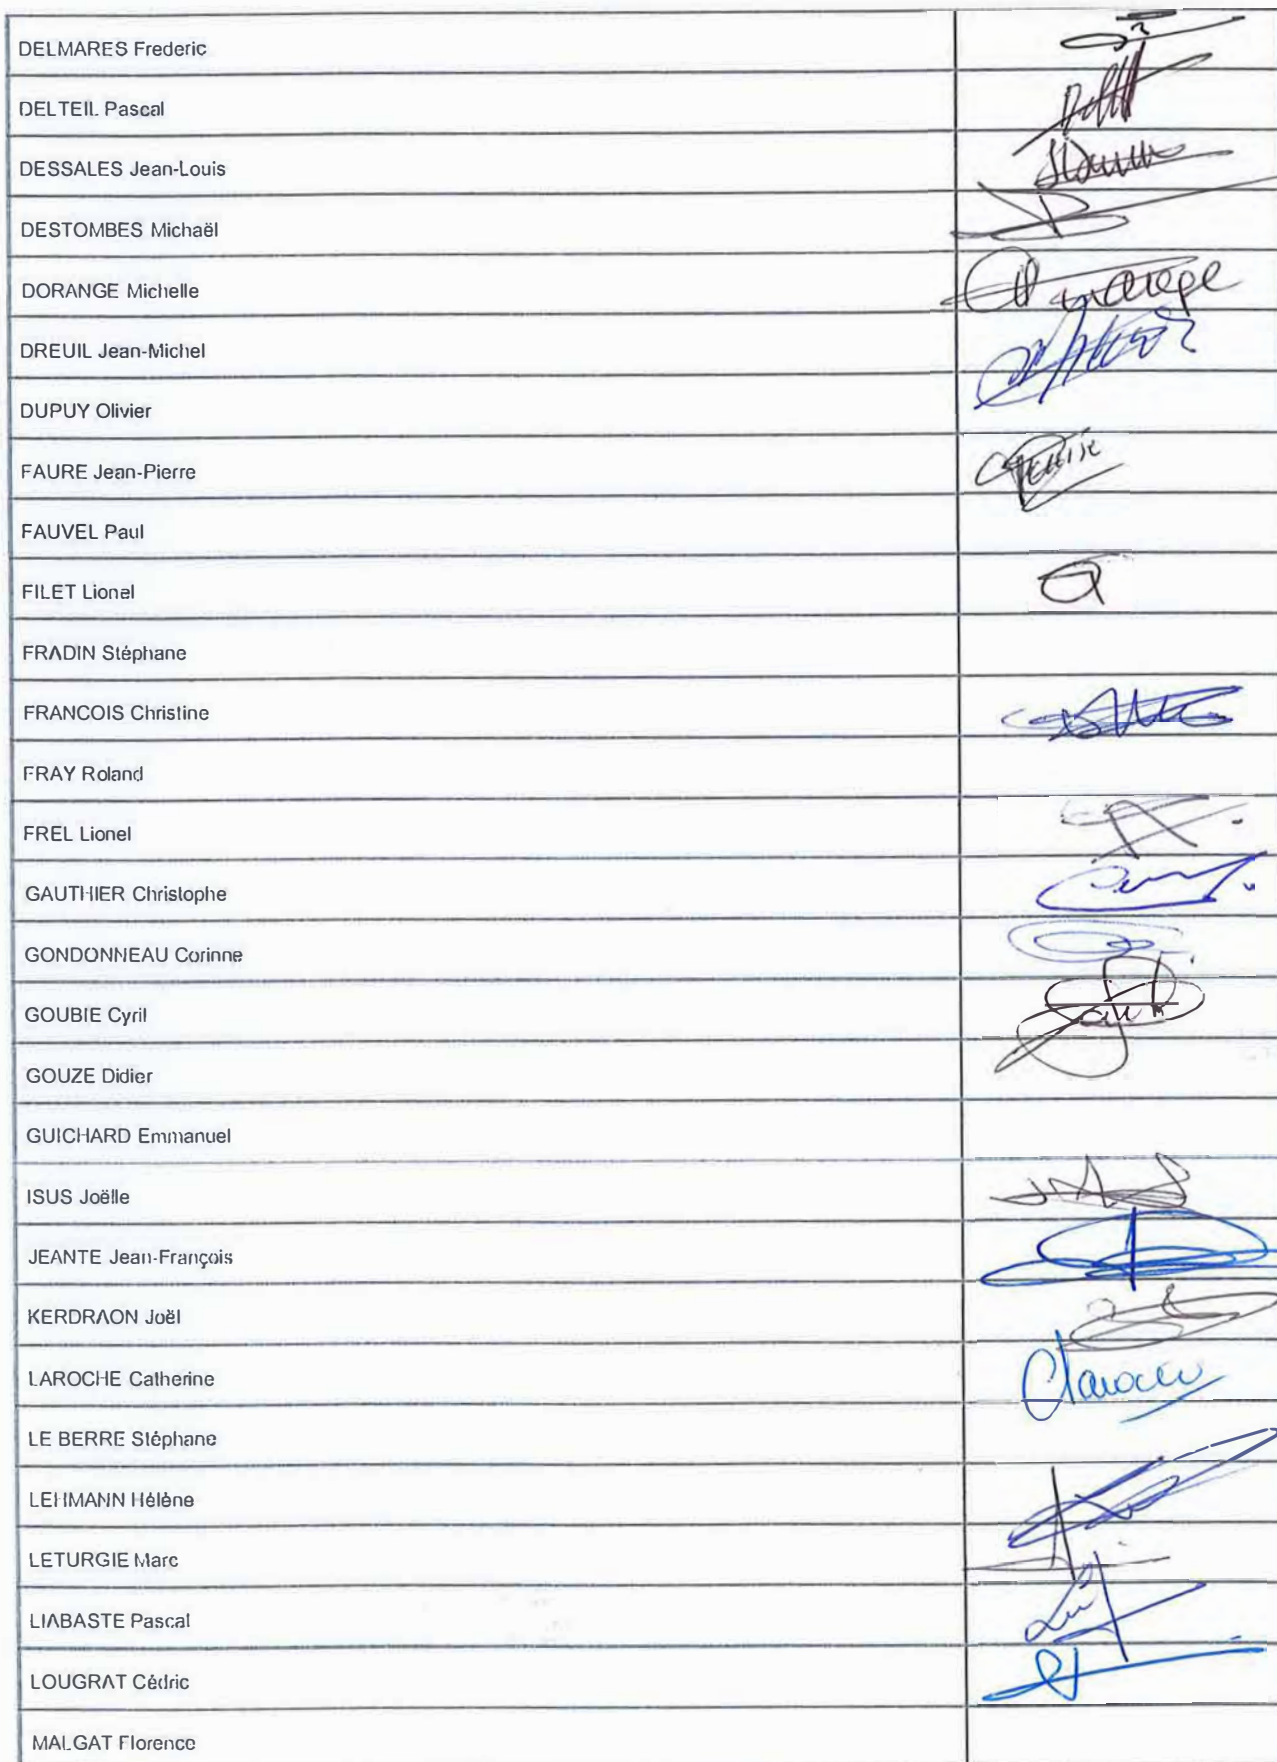 DELMARES Frederic
DELTEIL Pascal
DESSALES Jean-Louis
DESTOMBES Michaël
DORANGE Michelle
DREUIL Jean-Michel
DUPUY Olivier
FAURE Jean-Pierre
FAUVEL Paul
FILET Lionel
FRADIN Stéphane
FRANCOIS Christine
FRAY Roland
FREL Lionel
GAUTHIER Christophe
GONDONNEAU Corinne
GOUBIE Cyril
GOUZE Didier
GUICHARD Emmanuel
ISUS Joëlle
JEANTE Jean-François
KERDRAON Joël
LAROCHE Catherine
LE BERRE Stéphane
LEHMANN Hélène
LETURGIE Marc
LIABASTE Pascal
LOUGRAT Cédric
MALGAT Florence